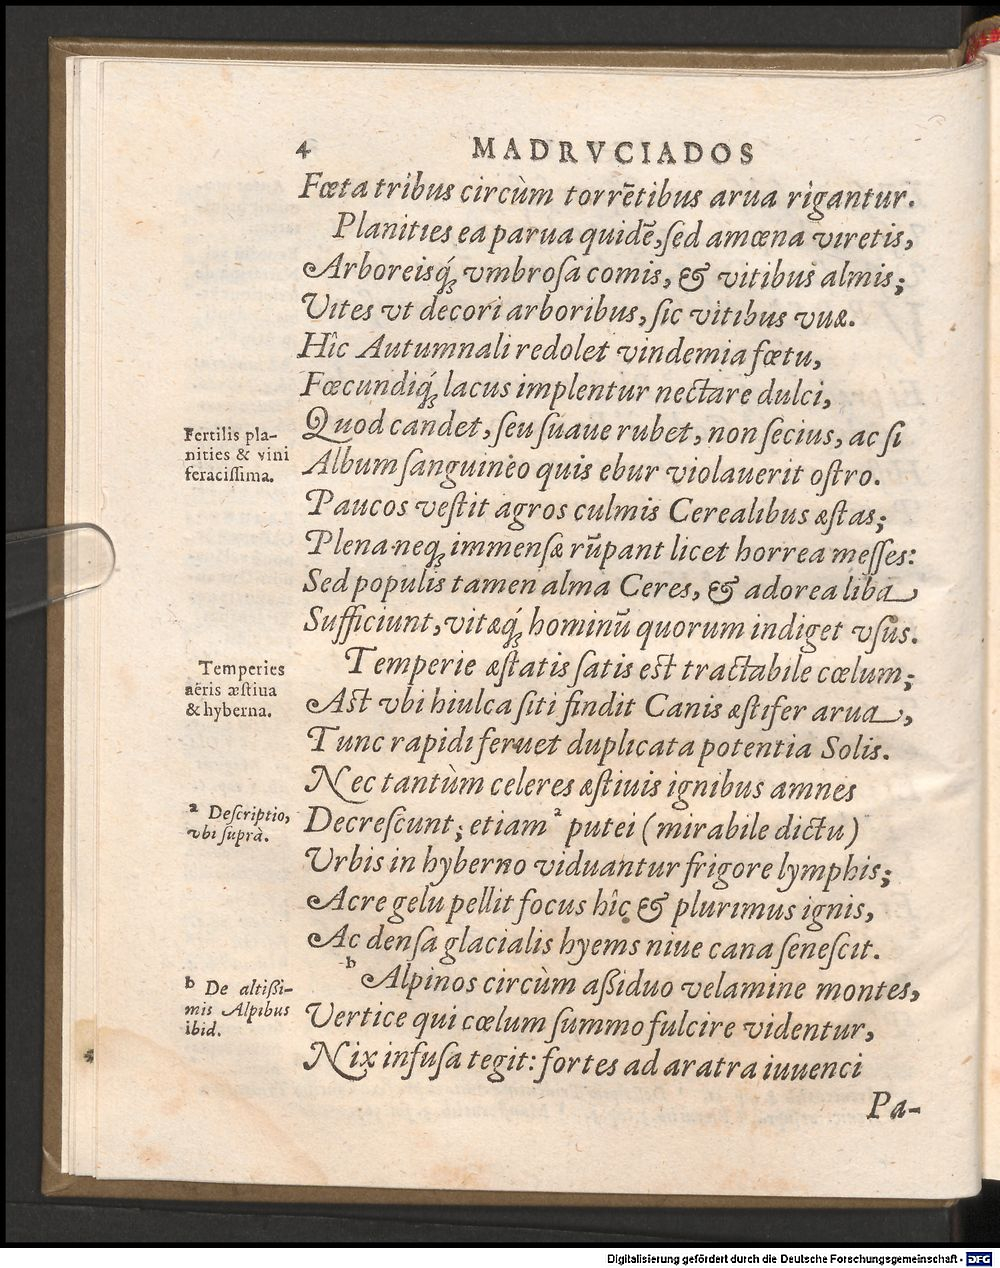 4 MADRVCIADOS
Fœta tribus circùm torrẽtibus arua rigantur.
Planities ea parua quidẽ, ſed amœna viretis,
Arboreisq́; vmbroſa comis, & vitibus almis;
Vites vt decori arboribus, ſic vitibus vuæ.
Hîc Autumnali redolet vindemia fœtu,
Fœcundiq́; lacus implentur nectare dulci,
Quod candet, ſeu ſuaue rubet, non ſecius, ac ſi
Album ſanguineo quis ebur violauerit oſtro.
Paucos veſtit agros culmis Cerealibus æſtas;
Plena neq; immenſæ rũpant licet horrea meſſes:
Sed populis tamen alma Ceres, & adorea liba
Sufficiunt, vitæq́; hominũ quorum indiget vſus.
Temperie æſtatis ſatis est tractabile cœlum;
Ast vbi hiulca ſiti findit Canis æſtifer arua,
Tunc rapidi feruet duplicata potentia Solis.
Nec tantùm celeres æſtiuis ignibus amnes
Decreſcunt; etiam ² putei (mirabile dictu)
Vrbis in hyberno viduantur frigore lymphis;
Acre gelu pellit focus hîc & plurimus ignis,
Ac denſa glacialis hyems niue cana ſeneſcit.
b Alpinos circùm aßiduo velamine montes,
Vertice qui cœlum ſummo fulcire videntur,
Nix infuſa tegit: fortes ad aratra iuuenci
Pa-
Fertilis pla-
nities & vini
feraciſſima.
Temperies
aëris æſtiua
& hyberna.
a Deſcriptio,
vbi ſuprà.
b De altißi-
mis Alpibus
ibid.
Digitalisierung gefördert durch die Deutsche Forschungsgemeinschaft - DFG